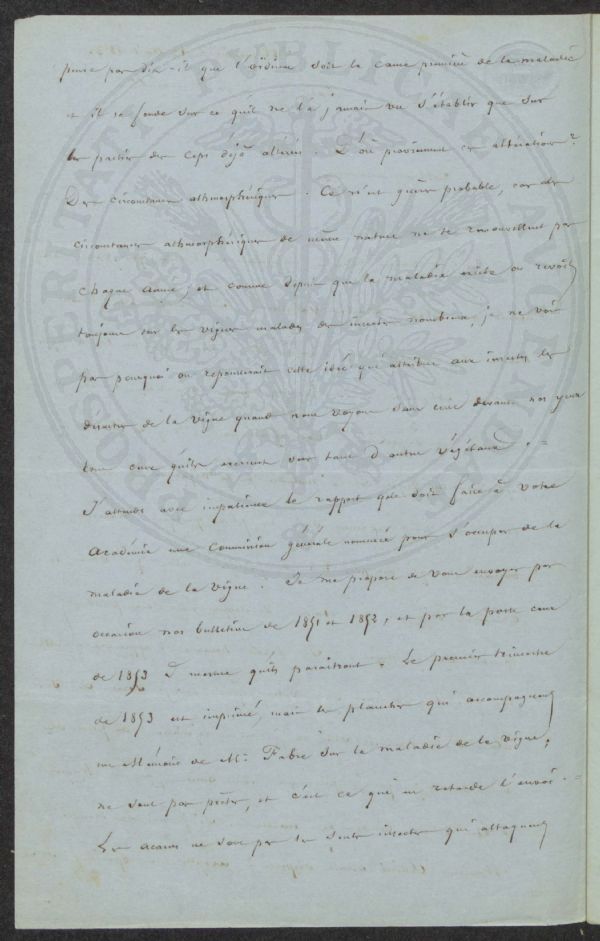 pense pas dit-il que l'oïdium soit la cause première de la maladie
et il se fonde sur ce qu'il ne l'a jamais vu s'établir que sur
les parties des ceps déjà altérées. D'où proviennent ces altérations?
Des circonstances athmosphériques. Ce n'est guère probable, car des
circonstances athmosphériques de même nature ne se renouvellent pas
chaque année, et comme depuis que la maladie existe on revoit
toujours sur les vignes malades des insectes nombreux, je ne vois
pas pourquoi on repousserait cette idée qui attribue aux insectes les
désastres de la vigne quand nous voyons sans cesse devant nos yeux
ceux qu'ils exercent sur tant d'autres végétaux. =
J'attends avec impatience le rapport que doit faire à votre
Académie une Commission générale nommée pour s'occuper de la
maladie de la vigne. Je me propose de vous envoyer par
occasion nos bulletins de 1851 et 1852, et par la poste ceux
de 1853 à mesure qu'ils paraîtront. Le premier trimestre
de 1853 est imprimé, mais les planches qui accompagnent
un Mémoire de Mr. Fabre sur la maladie de la vigne,
ne sont pas prêtes, et c'est ce qui en retarde l'envoi. =
Les acarus ne sont pas les seuls insectes qui attaquent